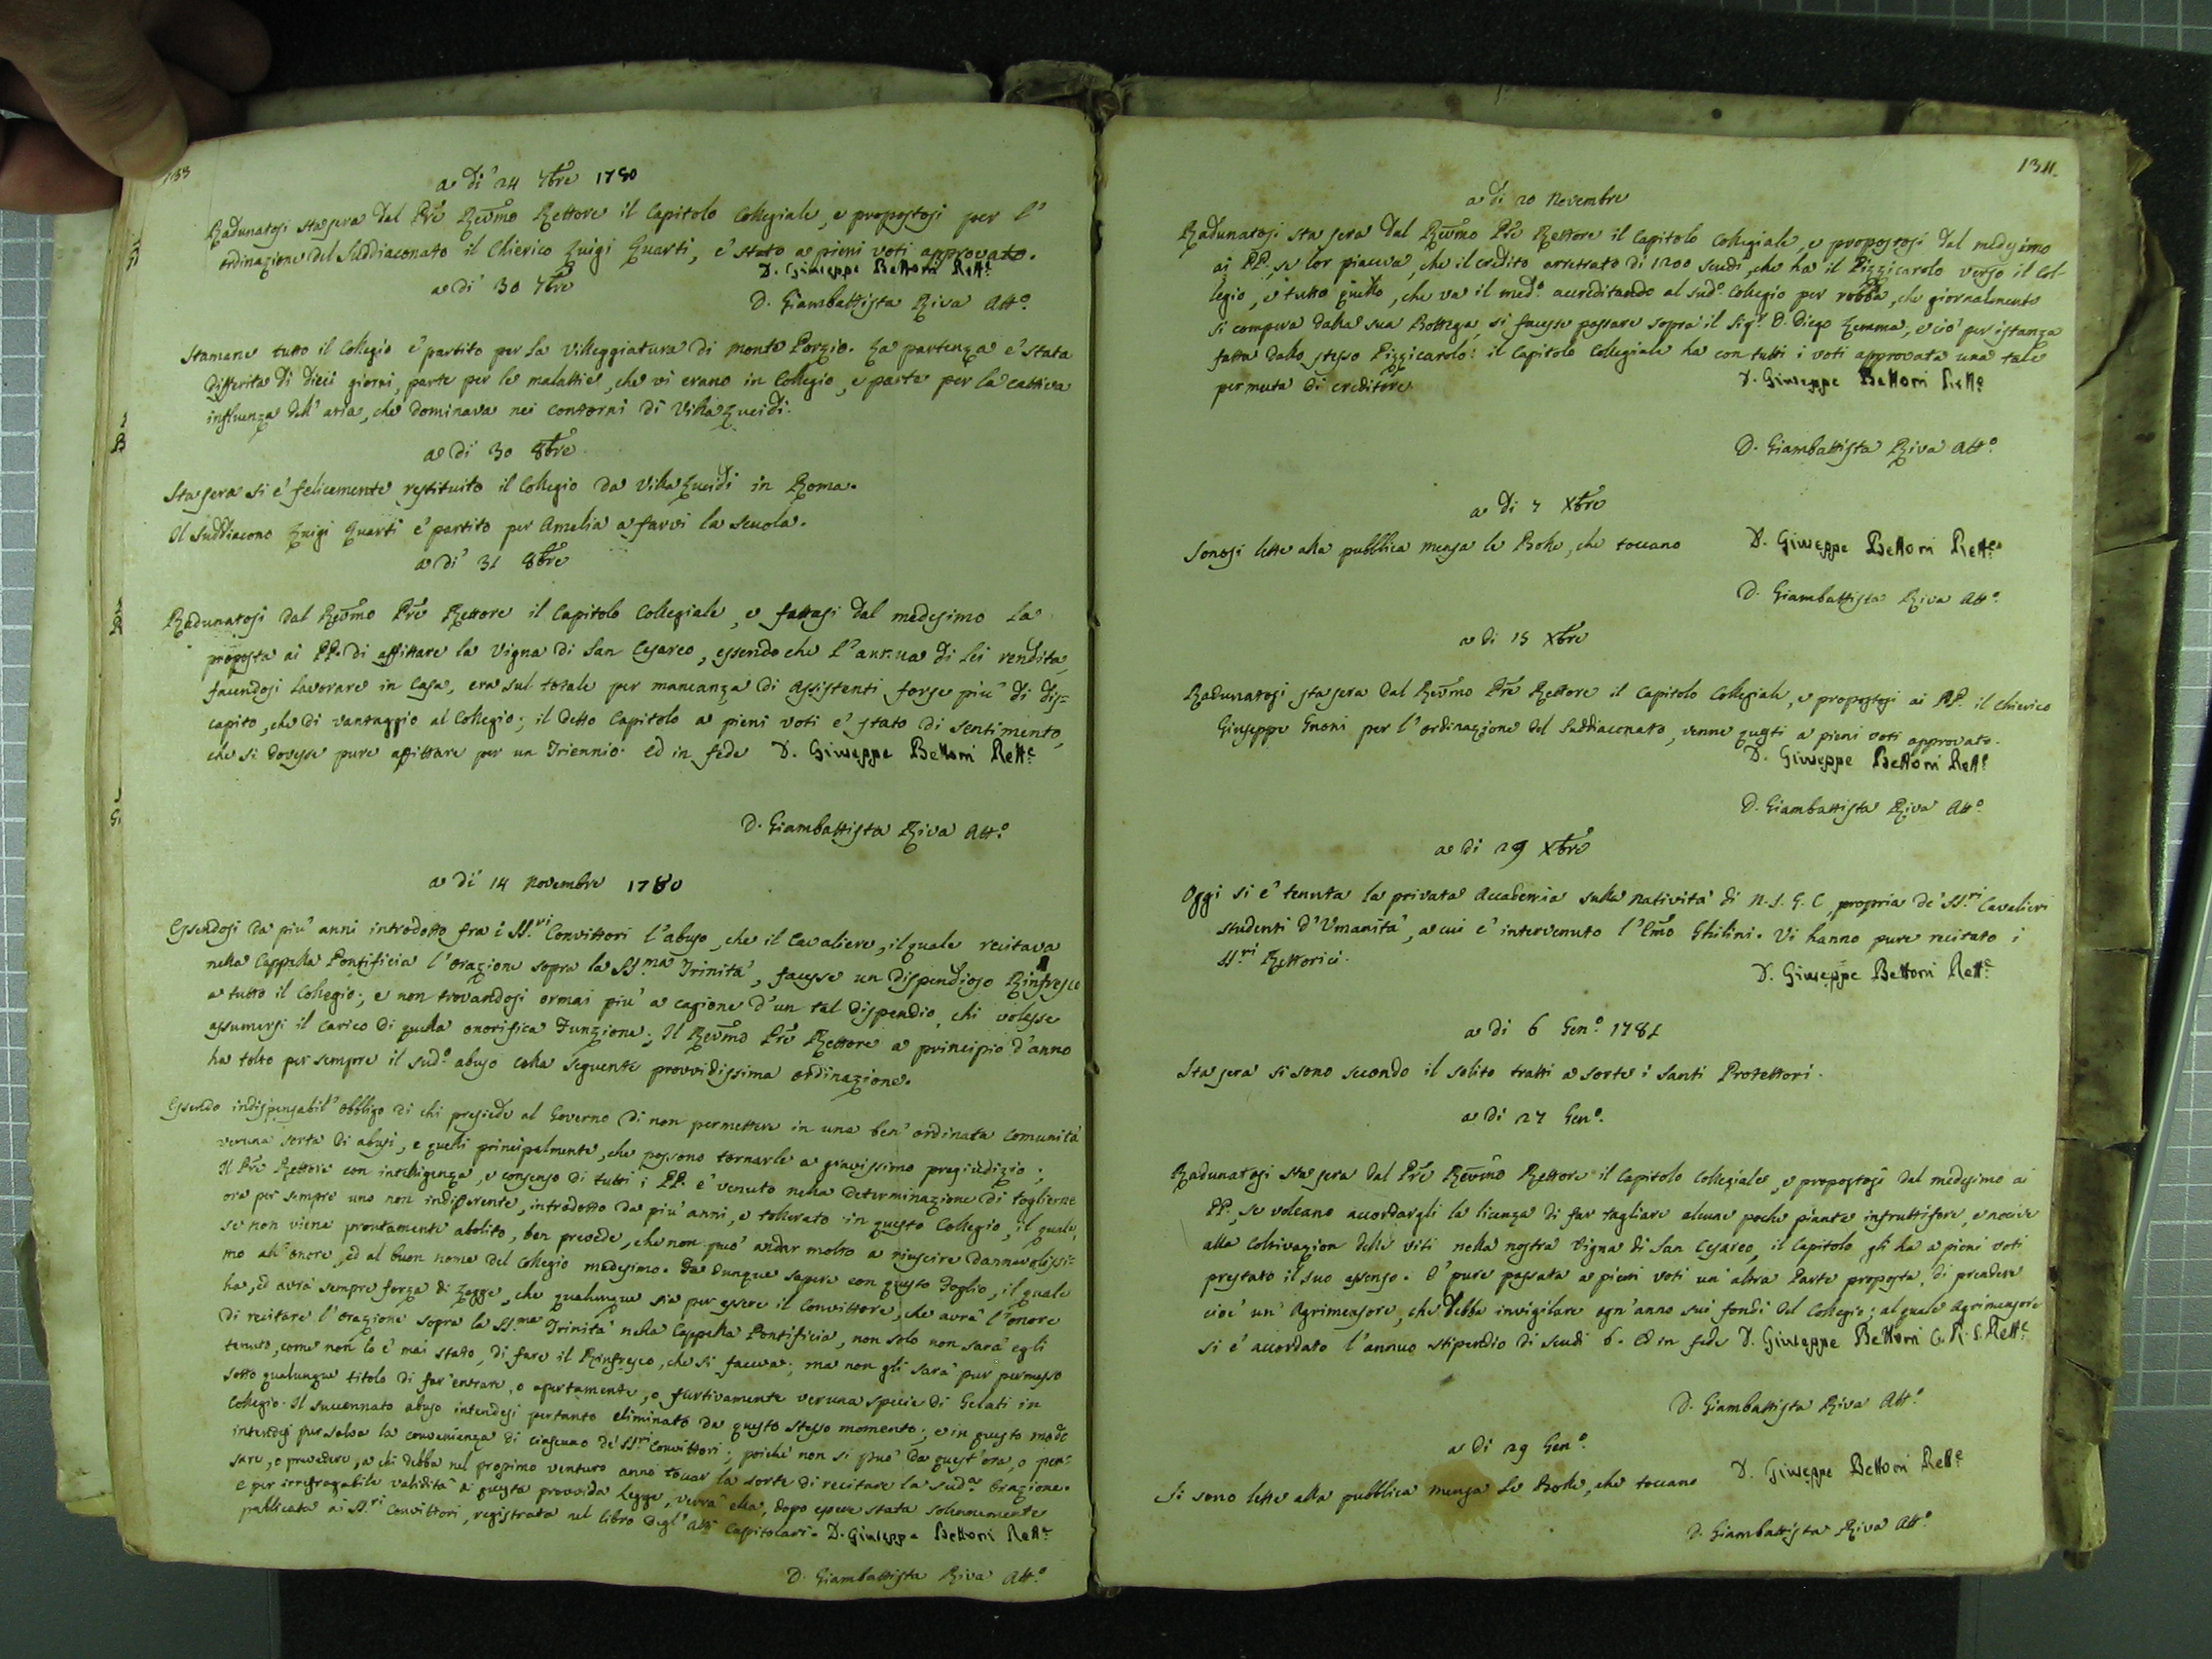 133
a dì 24 7bre 1780
Radunatosi stasera dal Prē Rev̄mo Rettore il Capitolo Collegiale, e propostosi per l'
ordinazione del Suddiaconato il Chierico Luigi Quarti, è stato a pieni voti approvato.
D. Giuseppe Bettoni Rett.e
a dì 30 7bre
D. Giambattista Riva Att.o
Stamane tutto il Collegio è partito per la Villeggiatura di Monte Porzio. La partenza è stata
differita di dieci giorni, parte per le malattie, che vi erano in Collegio, e parte per la cattiva
influenza dell' aria, che dominava nei contorni di Villa Lucidi.
a dì 30 8bre
Stasera si è felicemente restituito il Collegio da Villa Lucidi in Roma.
Il Suddiacono Luigi Quarti è partito per Amelia a farvi la scuola.
a dì 31 8bre
Radunatosi dal Rev̄mo Prē Rettore il Capitolo Collegiale, e fattasi dal medesimo la
proposta ai PP. di affittare la Vigna di San Cesareo, essendo che l'annua di lei rendita,
facendosi lavorare in Casa, era sul totale per mancanza di Assistenti forse più di dis=
capito, che di vantaggio al Collegio; il detto Capitolo a pieni voti è stato di sentimento,
che si dovesse pure affittare per un Triennio. Ed in fede D. Giuseppe Bettoni Rett.e
D. Giambattista Riva Att.o
a dì 14 Novembre 1780
Essendosi da più anni introdotto fra i SS.ri Convittori l'abuso, che il Cavaliere, il quale recitava
nella Cappella Pontificia l'orazione sopra la SS.ma Trinità, facesse un dispendioso Rinfresco
a tutto il Collegio; e non trovandosi ormai più a cagione d'un tal dispendio, chi volesse
assumersi il carico di quella onorifica Funzione; Il Rev̄mo Prē Rettore a principio d'anno
ha tolto per sempre il sud.o abuso colla seguente provvidissima ordinazione.
Essendo indispensabil' obbligo di chi presiede al Governo di non permettere in una ben' ordinata Comunità
veruna sorta di abusi, e quelli principalmente, che possono tornarle a gravissimo pregiudizio;
Il Prē Rettore con intelligenza, e consenso di tutti i PP. è venuto nella determinazione di toglierne
ora per sempre uno non indifferente, introdotto da più anni, e tollerato in questo Collegio, il quale,
se non viene prontamente abolito, ben prevede, che non può andar molto a riuscire dannevolissi-
mo all' onore, ed al buon nome del Collegio medesimo. Fa dunque sapere con questo Foglio, il quale
ha, ed avrà sempre forza di Legge, che qualunque sia per essere il Convittore, che avrà l'onore
di recitare l'orazione sopra la SS.ma Trinità nella Cappella Pontificia, non solo non sarà egli
tenuto, come non lo è mai stato, di fare il Rinfresco, che si faceva; ma non gli sarà pur permesso
sotto qualunque titolo di far' entrare, o apertamente, o furtivamente veruna specie di Gelati in
Collegio. Il succennato abuso intendesi pertanto eliminato da questo stesso momento; e in questo modo
intendesi pur salva la convenienza di ciascuno de' SS.ri Convittori; poichè non si può da quest' ora, o pen-
sare, o prevedere, a chi debba nel prossimo venturo anno toccar la sorte di recitare la sud.a Orazione.
E per irrefragabile validità di questa provvida Legge, verrà ella, dopo essere stata solennemente
pubblicata ai SS.ri Convittori, registrata nel libro degl' Atti Capitolari. D. Giuseppe Bettoni Rett.e
D. Giambattista Riva Att.o
134.
a dì 20 Novembre
Radunatosi sta sera dal Rev̄mo Prē Rettore il Capitolo Collegiale, e propostosi dal medesimo
ai PP. se lor piaceva, che il credito arretrato di 1200 scudi, che ha il Pizzicarolo verso il Col-
legio, e tutto quello, che va il med.o accreditando al sud.o Collegio per robba, che giornalmente
si compera dalla sua Bottega, si facesse passare sopra il Sig.r D. Diego Lemma, e ciò per istanza
fatta dallo stesso Pizzicarolo: il Capitolo Collegiale ha con tutti i voti approvata una tale
permuta di creditore
D. Giuseppe Bettoni Rett.e
D. Giambattista Riva Att.o
a dì 7 Xbre
Sonosi lette alla pubblica mensa le Bolle, che toccano
D. Giuseppe Bettoni Rett.e
D. Giambattista Riva Att.o
a dì 15 Xbre
Radunatosi stasera dal Rev̄mo Prē Rettore il Capitolo Collegiale, e propostosi ai PP. il Chierico
Giuseppe Gnoni per l'ordinazione del Suddiaconato, venne questi a pieni voti approvato.
D. Giuseppe Bettoni Rett.e
D. Giambattista Riva Att.o
a dì 29 Xbre
Oggi si è tenuta la privata Accademia sulla Natività di N. S. G. C, propria de' SS.ri Cavalieri
studenti d'Umanità, a cui è intervenuto l'Em̄o Ghilini. Vi hanno pure recitato i
SS.ri Rettorici.
D. Giuseppe Bettoni Rett.e
a dì 6 Gen.o 1781
Sta sera si sono secondo il solito tratti a sorte i Santi Protettori.
a dì 27 Gen.o
Radunatosi sta sera dal Prē Rev̄mo Rettore il Capitolo Collegiale, e propostosi dal medesimo ai
PP., se voleano accordargli la licenza di far tagliare alcune poche piante infruttifere, e nocive
alla coltivazion delle viti nella nostra Vigna di San Cesareo, il Capitolo gli ha a pieni voti
prestato il suo assenso. E' pure passata a pieni voti un' altra Parte proposta, di prendere
cioè un' Agrimensore, che debba invigilare ogn' anno sui fondi del Collegio; al quale Agrimensore
si è accordato l'annuo stipendio di scudi 6. Ed in fede D. Giuseppe Bettoni C. R. S. Rett.e
D. Giambattista Riva Att.o
a dì 29 Gen.o
Si sono lette alla pubblica mensa le Bolle, che toccano
D. Giuseppe Bettoni Rett.e
D. Giambattista Riva Att.o